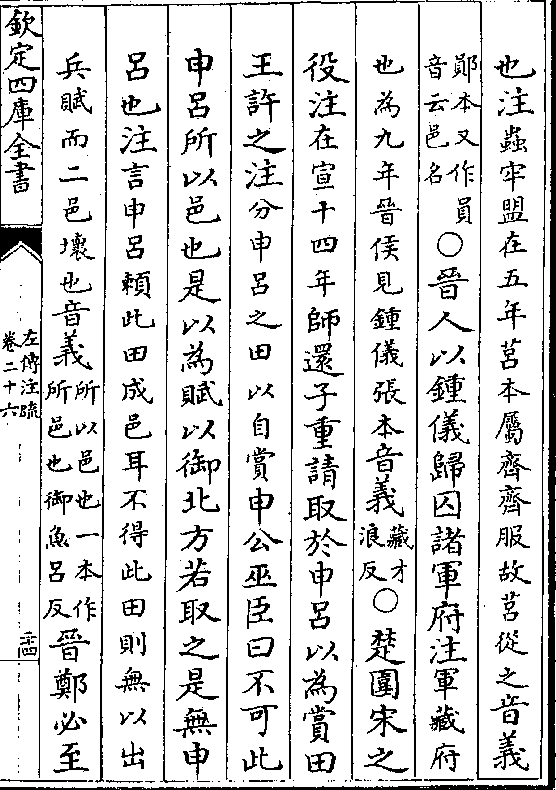 也注蟲牢盟在五年莒本屬齊齊服故莒從之音義
鄖本又作員
音云邑名
○晉人以鍾儀歸囚諸軍府注軍藏府
也為九年晉侯見鍾儀張本音義
藏才
浪反
○楚圍宋之
役注在宣十四年師還子重請取於申呂以為賞田
王許之注分申呂之田以自賞申公巫臣曰不可此
申呂所以邑也是以為賦以御北方若取之是無申
呂也注言申呂賴此田成邑耳不得此田則無以出
兵賦而二邑壞也音義
所以邑也一本作
所邑也御魚呂反
晉鄭必至
欽定四庫全書
左傳注疏
卷二十六
二十四